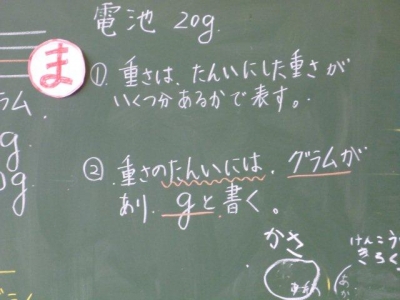 電池 20g
ま
① 重さは、たんいにした重さが
いくつ分あるかで表す。
ラム
g
0g
② 重さのたんいには、グラムが
あり、gと書く。
かさ
けんこう
きろく